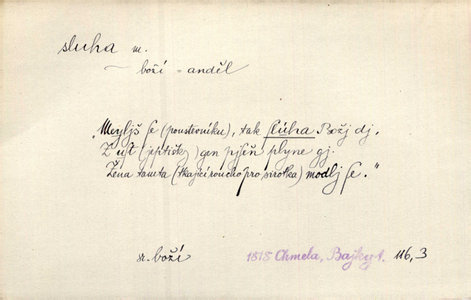 sluha m.
~ boží = anděl
„Meyljš se (poustevníku), tak slúha Božj dj.
Z úst jeptišky) gen pjseň plyne gj.
Žena tamta (tkající roucho pro sirotka) modlj se.“
sr. boží
1818 Chmela, Bajky 1. 116,3